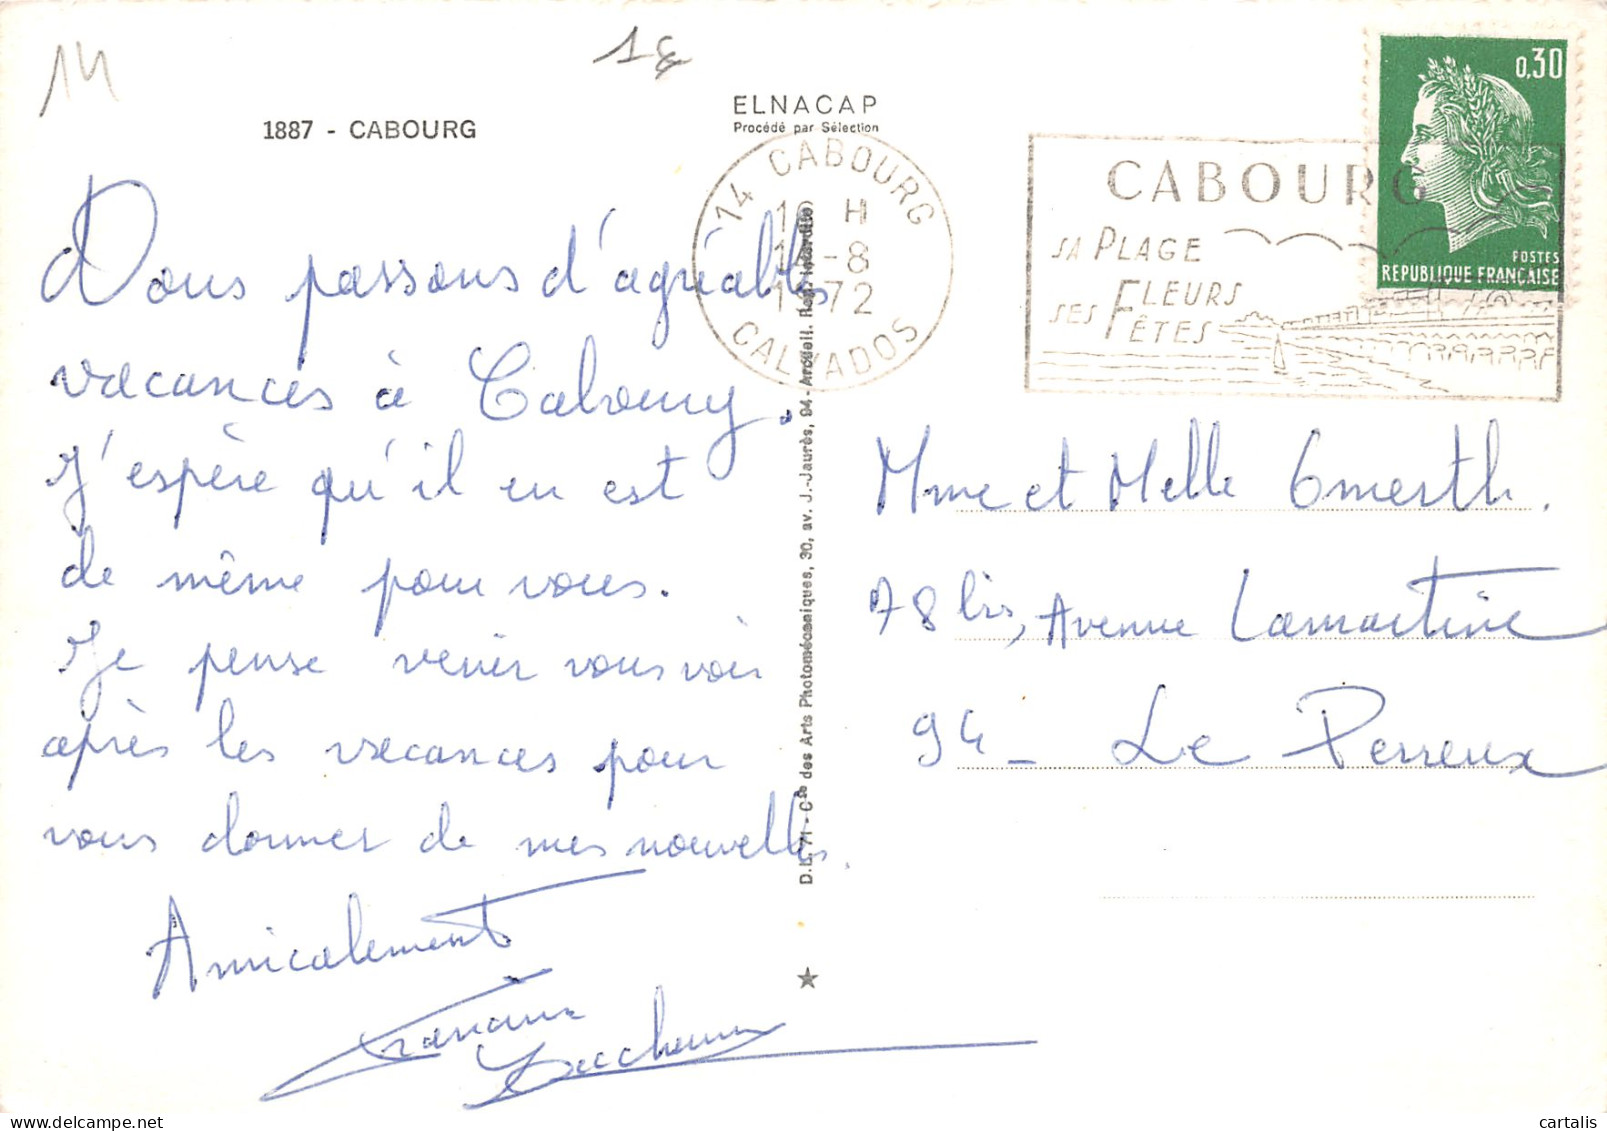 14
1887 - CABOURG
ELNACAP
Procédé par Sélection
14 CABOURG
H
-8
1972
CALVADOS
CABOURG
SA PLAGE
SES FLEURS
FÊTES
0,30
POSTES
REPUBLIQUE FRANÇAISE
Nous passons d'agréables
vacances à Cabourg.
J'espère qu'il en est
de même pour vous.
Je pense venir vous voir
après les vacances pour
vous donner de mes nouvelles.
Amicalement
D.L. 71 - Cie des Arts Photomécaniques, 30, av. J.-Jaurès, 94 - Arcueil. Rep. interdite
Mme et Melle
78 bis, Avenue Lamartine
94 - Le Perreux
cartalis
www.delcampe.net